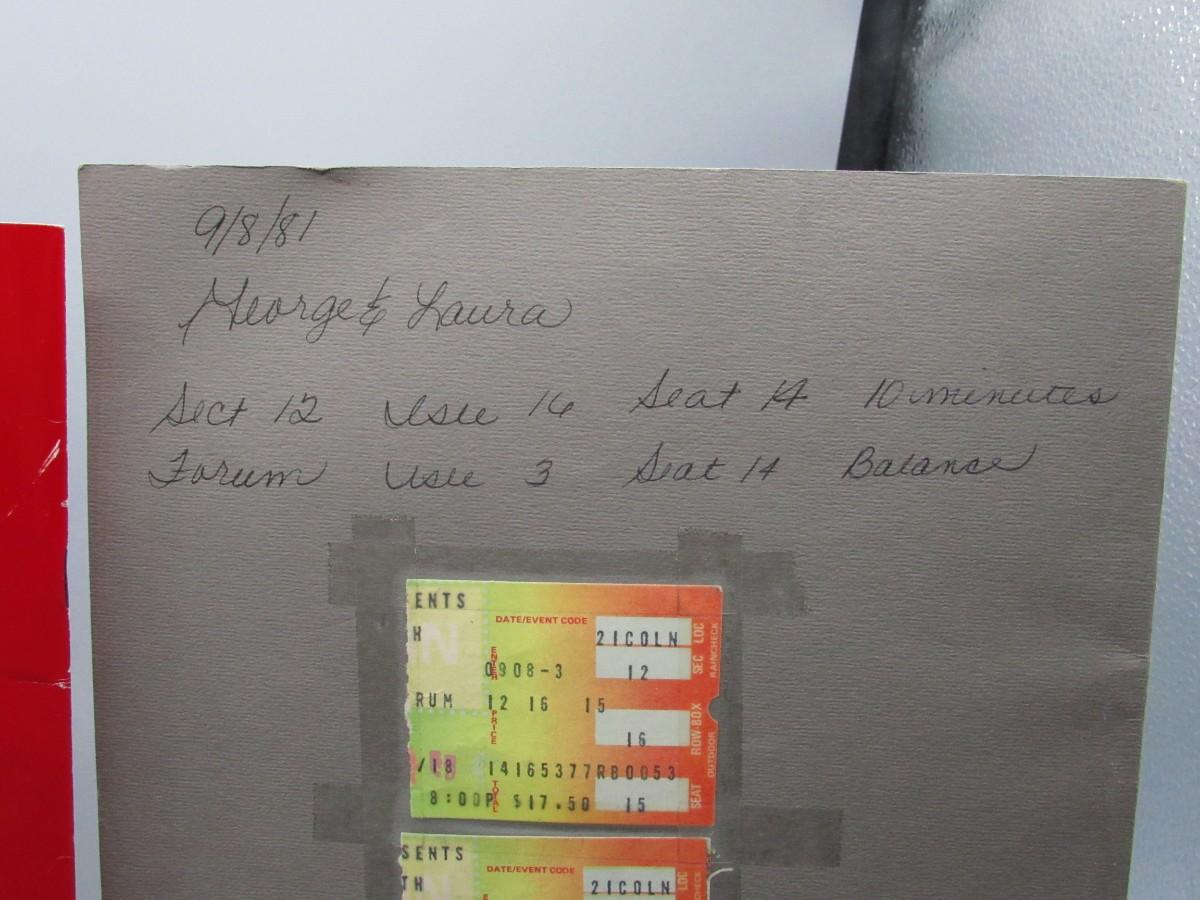 9/8/81
George & Laura
Sect 12 16 Seat 14 10 minutes
Forum 3 Seat 14 Balance
ENTS
DATE/EVENT CODE
H
21COLN
SEC LOC
RAINCHECK
ENTER
0908-3
12
RUM 12 16 15
PRICE
16
ROW-BOX
OUTDOOR
/18 14165377RB0053
TOTAL
8:00P $17.50 15
SEAT
SENTS
DATE/EVENT CODE
TH
21COLN
LOC